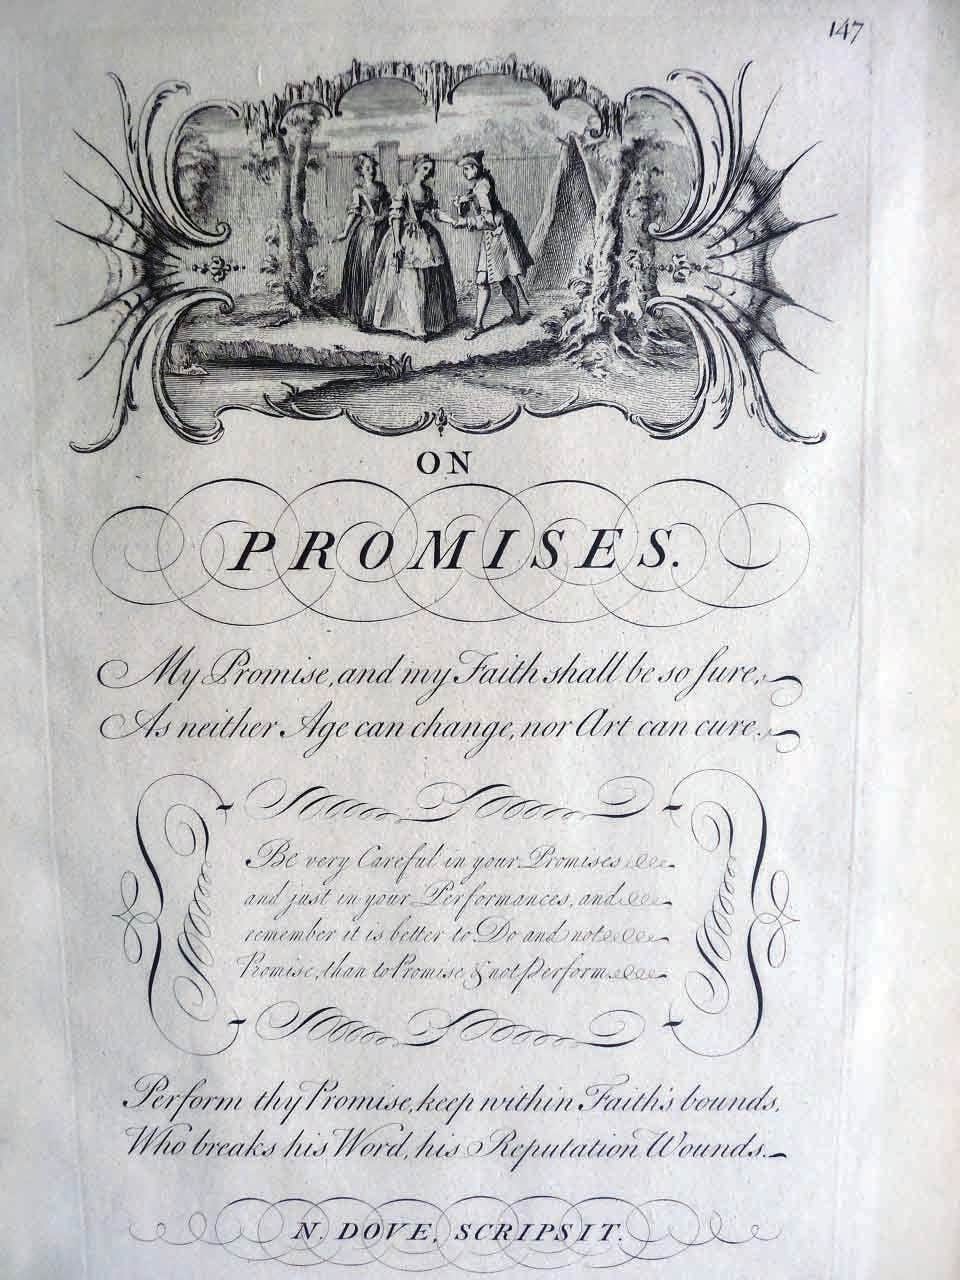 147
ON
PROMISES.
My Promise, and my Faith shall be so sure,
As neither Age can change, nor Art can cure.
Be very Careful in your Promises
and just in your Performances, and
remember it is better to Do and not
Promise, than to Promise & not Perform
Perform thy Promise, keep within Faith's bounds,
Who breaks his Word, his Reputation Wounds.
N. DOVE, SCRIPSIT.